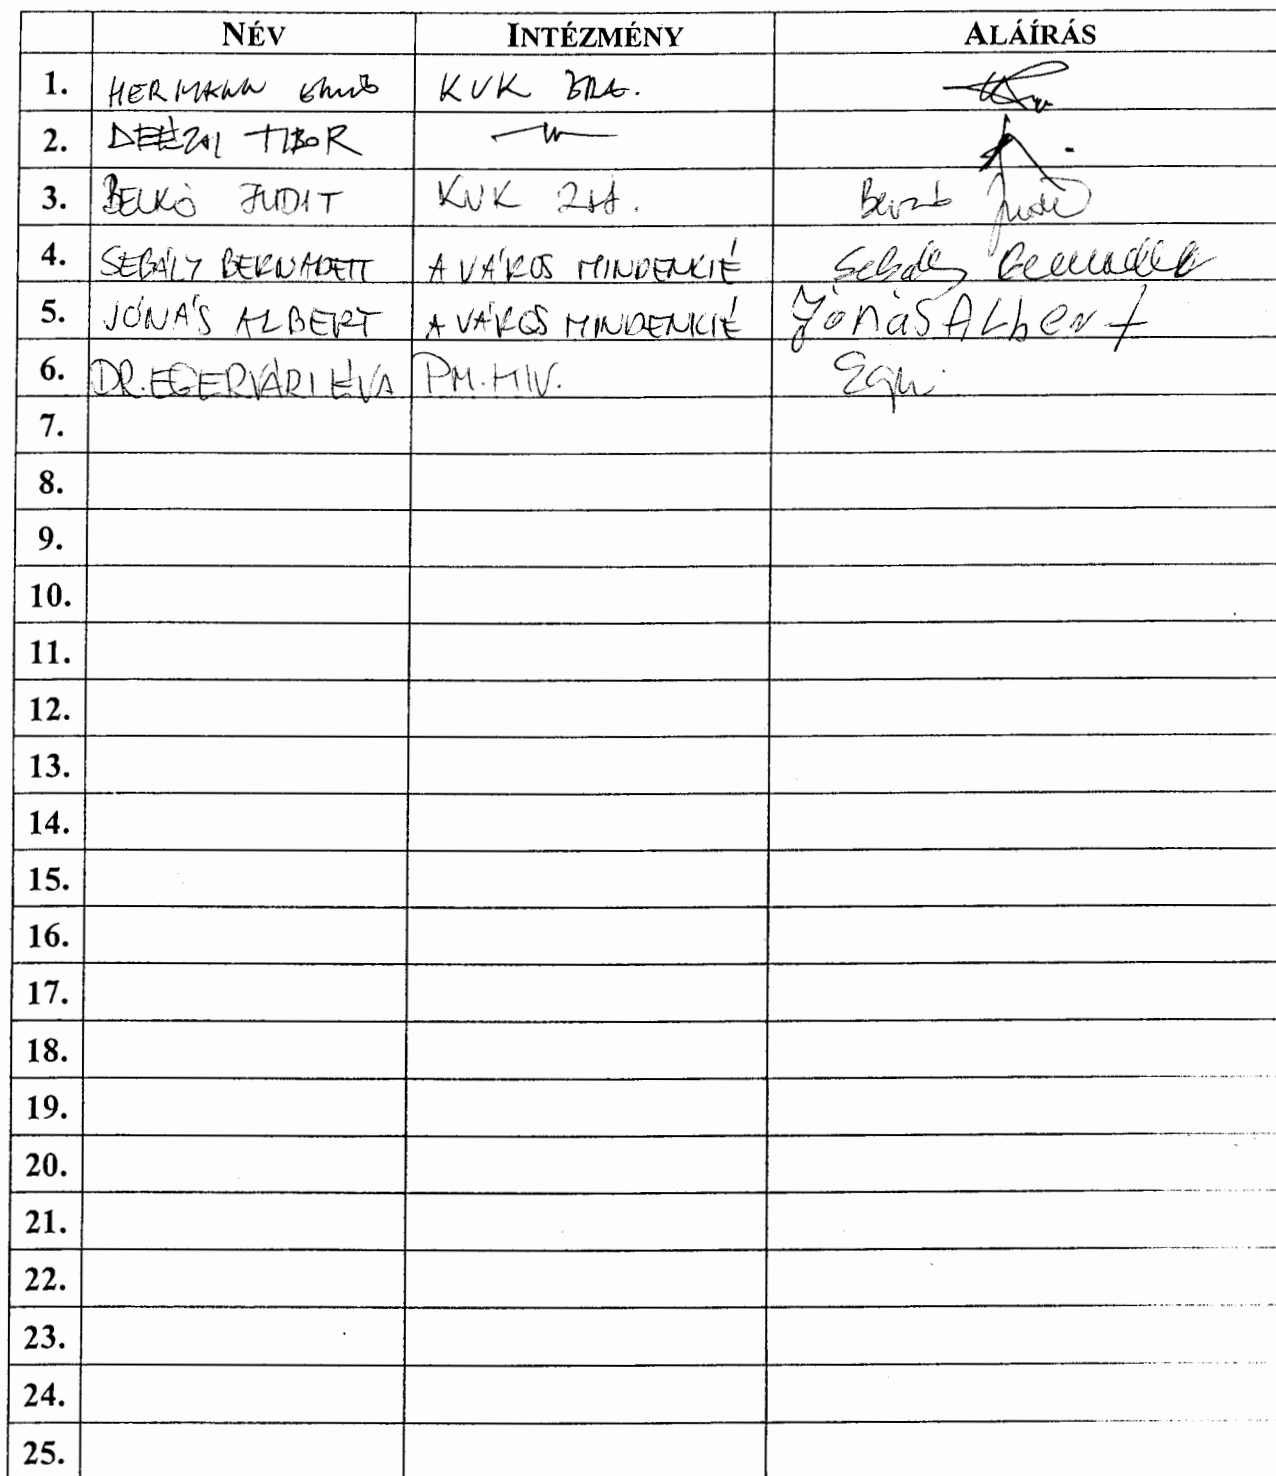 NÉV INTÉZMÉNY ALÁÍRÁS
1. HERMANN KVK ZRT.
2. TIBOR
3. BELKÓ JUDIT KVK Zrt.
4. SEBÁLY BERNADETT A VÁROS MINDENKIÉ Sebály Bernadett
5. JÓNÁS ALBERT A VÁROS MINDENKIÉ Jónás ALbert
6. DR. EGERVÁRI ÉVA PM. HIV.
7.
8.
9.
10.
11.
12.
13.
14.
15.
16.
17.
18.
19.
20.
21.
22.
23.
24.
25.